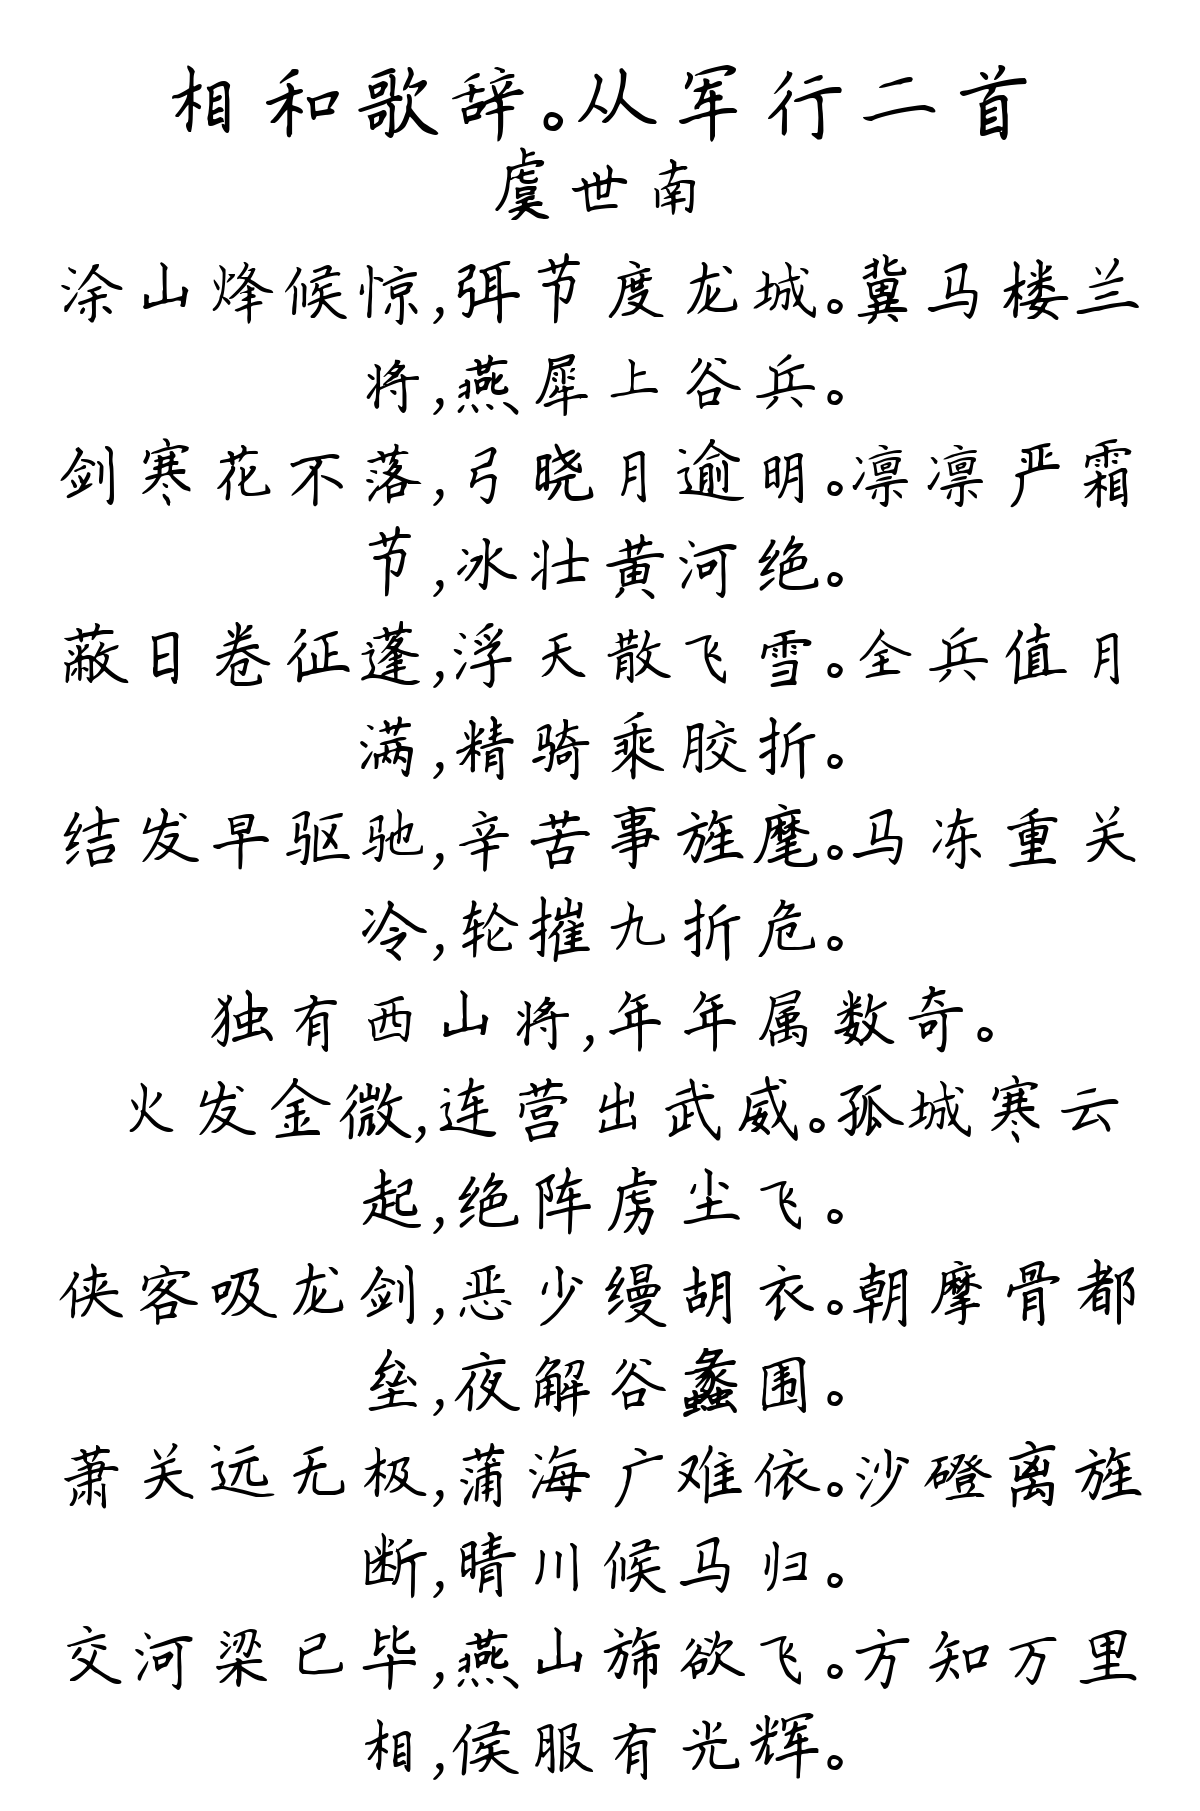 相和歌辞。从军行二首
虞世南
涂山烽候惊,弭节度龙城。冀马楼兰
将,燕犀上谷兵。
剑寒花不落,弓晓月逾明。凛凛严霜
节,冰壮黄河绝。
蔽日卷征蓬,浮天散飞雪。全兵值月
满,精骑乘胶折。
结发早驱驰,辛苦事旌麾。马冻重关
冷,轮摧九折危。
独有西山将,年年属数奇。
火发金微,连营出武威。孤城寒云
起,绝阵虏尘飞。
侠客吸龙剑,恶少缦胡衣。朝摩骨都
垒,夜解谷蠡围。
萧关远无极,蒲海广难依。沙磴离旌
断,晴川候马归。
交河梁已毕,燕山旆欲飞。方知万里
相,侯服有光辉。